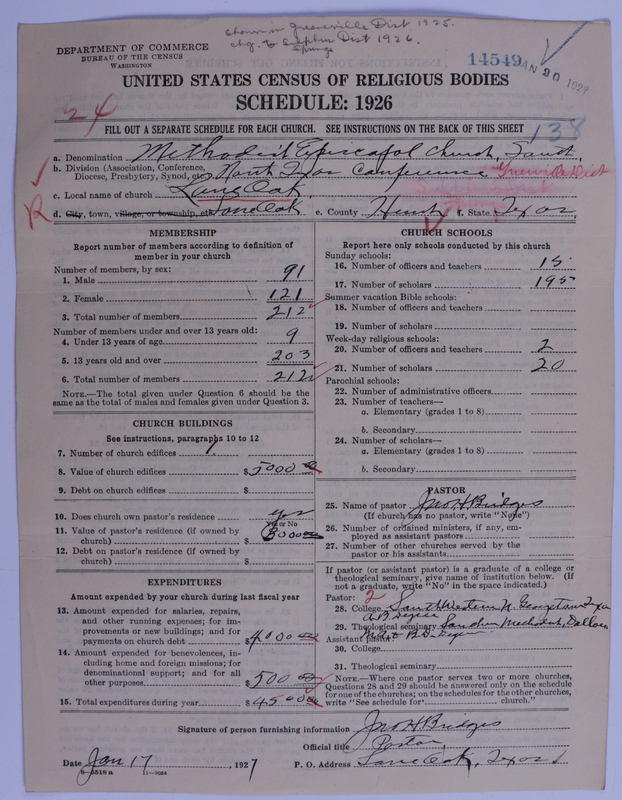 Shown in Greenville Dist 1925.
chg. to Sulphur Dist 1926.
Springs
DEPARTMENT OF COMMERCE
BUREAU OF THE CENSUS
WASHINGTON
14549
JAN 20 1927
UNITED STATES CENSUS OF RELIGIOUS BODIES
SCHEDULE: 1926
24
FILL OUT A SEPARATE SCHEDULE FOR EACH CHURCH. SEE INSTRUCTIONS ON THE BACK OF THIS SHEET
138
a. Denomination Methodist Episcopal Church, South,
b. Division (Association, Conference,
Diocese, Presbytery, Synod, etc.) North Texas Conference
c. Local name of church Lane Oak,
R
d. City, town, village, or township, etc. Lone Oak e. County Hunt f. State Texas,
MEMBERSHIP
Report number of members according to definition of
member in your church
Number of members, by sex:
1. Male 91
2. Female 121
3. Total number of members 212
Number of members under and over 13 years old:
4. Under 13 years of age 9
5. 13 years old and over 203
6. Total number of members 212
NOTE.—The total given under Question 6 should be the
same as the total of males and females given under Question 3.
CHURCH BUILDINGS
See instructions, paragraphs 10 to 12
7. Number of church edifices 1
8. Value of church edifices $5000 00
9. Debt on church edifices $
10. Does church own pastor's residence yes
Yes or No
11. Value of pastor's residence (if owned by
church) $3000 00
12. Debt on pastor's residence (if owned by
church) $
EXPENDITURES
Amount expended by your church during last fiscal year
13. Amount expended for salaries, repairs,
and other running expenses; for im-
provements or new buildings; and for
payments on church debt $4000 00
14. Amount expended for benevolences, in-
cluding home and foreign missions; for
denominational support; and for all
other purposes $500 00
15. Total expenditures during year $4500
CHURCH SCHOOLS
Report here only schools conducted by this church
Sunday schools:
16. Number of officers and teachers 15
17. Number of scholars 195
Summer vacation Bible schools:
18. Number of officers and teachers
19. Number of scholars
Week-day religious schools:
20. Number of officers and teachers 2
21. Number of scholars 20
Parochial schools:
22. Number of administrative officers
23. Number of teachers—
a. Elementary (grades 1 to 8)
b. Secondary
24. Number of scholars—
a. Elementary (grades 1 to 8)
b. Secondary
PASTOR
25. Name of pastor Jno H Bridges
(If church has no pastor, write "None")
26. Number of ordained ministers, if any, em-
ployed as assistant pastors
27. Number of other churches served by the
pastor or his assistants
If pastor (or assistant pastor) is a graduate of a college or
theological seminary, give name of institution below. (If
not a graduate, write "No" in the space indicated.)
Pastor: 2
28. College Southwestern U. Georgetown Texas
A B Degree
29. Theological seminary Southern Methodist, Dallas
Assistant pastor: B. D. Degree
30. College
31. Theological seminary
NOTE.—Where one pastor serves two or more churches,
Questions 28 and 29 should be answered only on the schedule
for one of the churches; on the schedules for the other churches,
write "See schedule for church."
Signature of person furnishing information Jno H Bridges
Official title Pastor
Date Jan 17, 1927 P. O. Address Lone Oak, Texas
8-5518a 11-9034